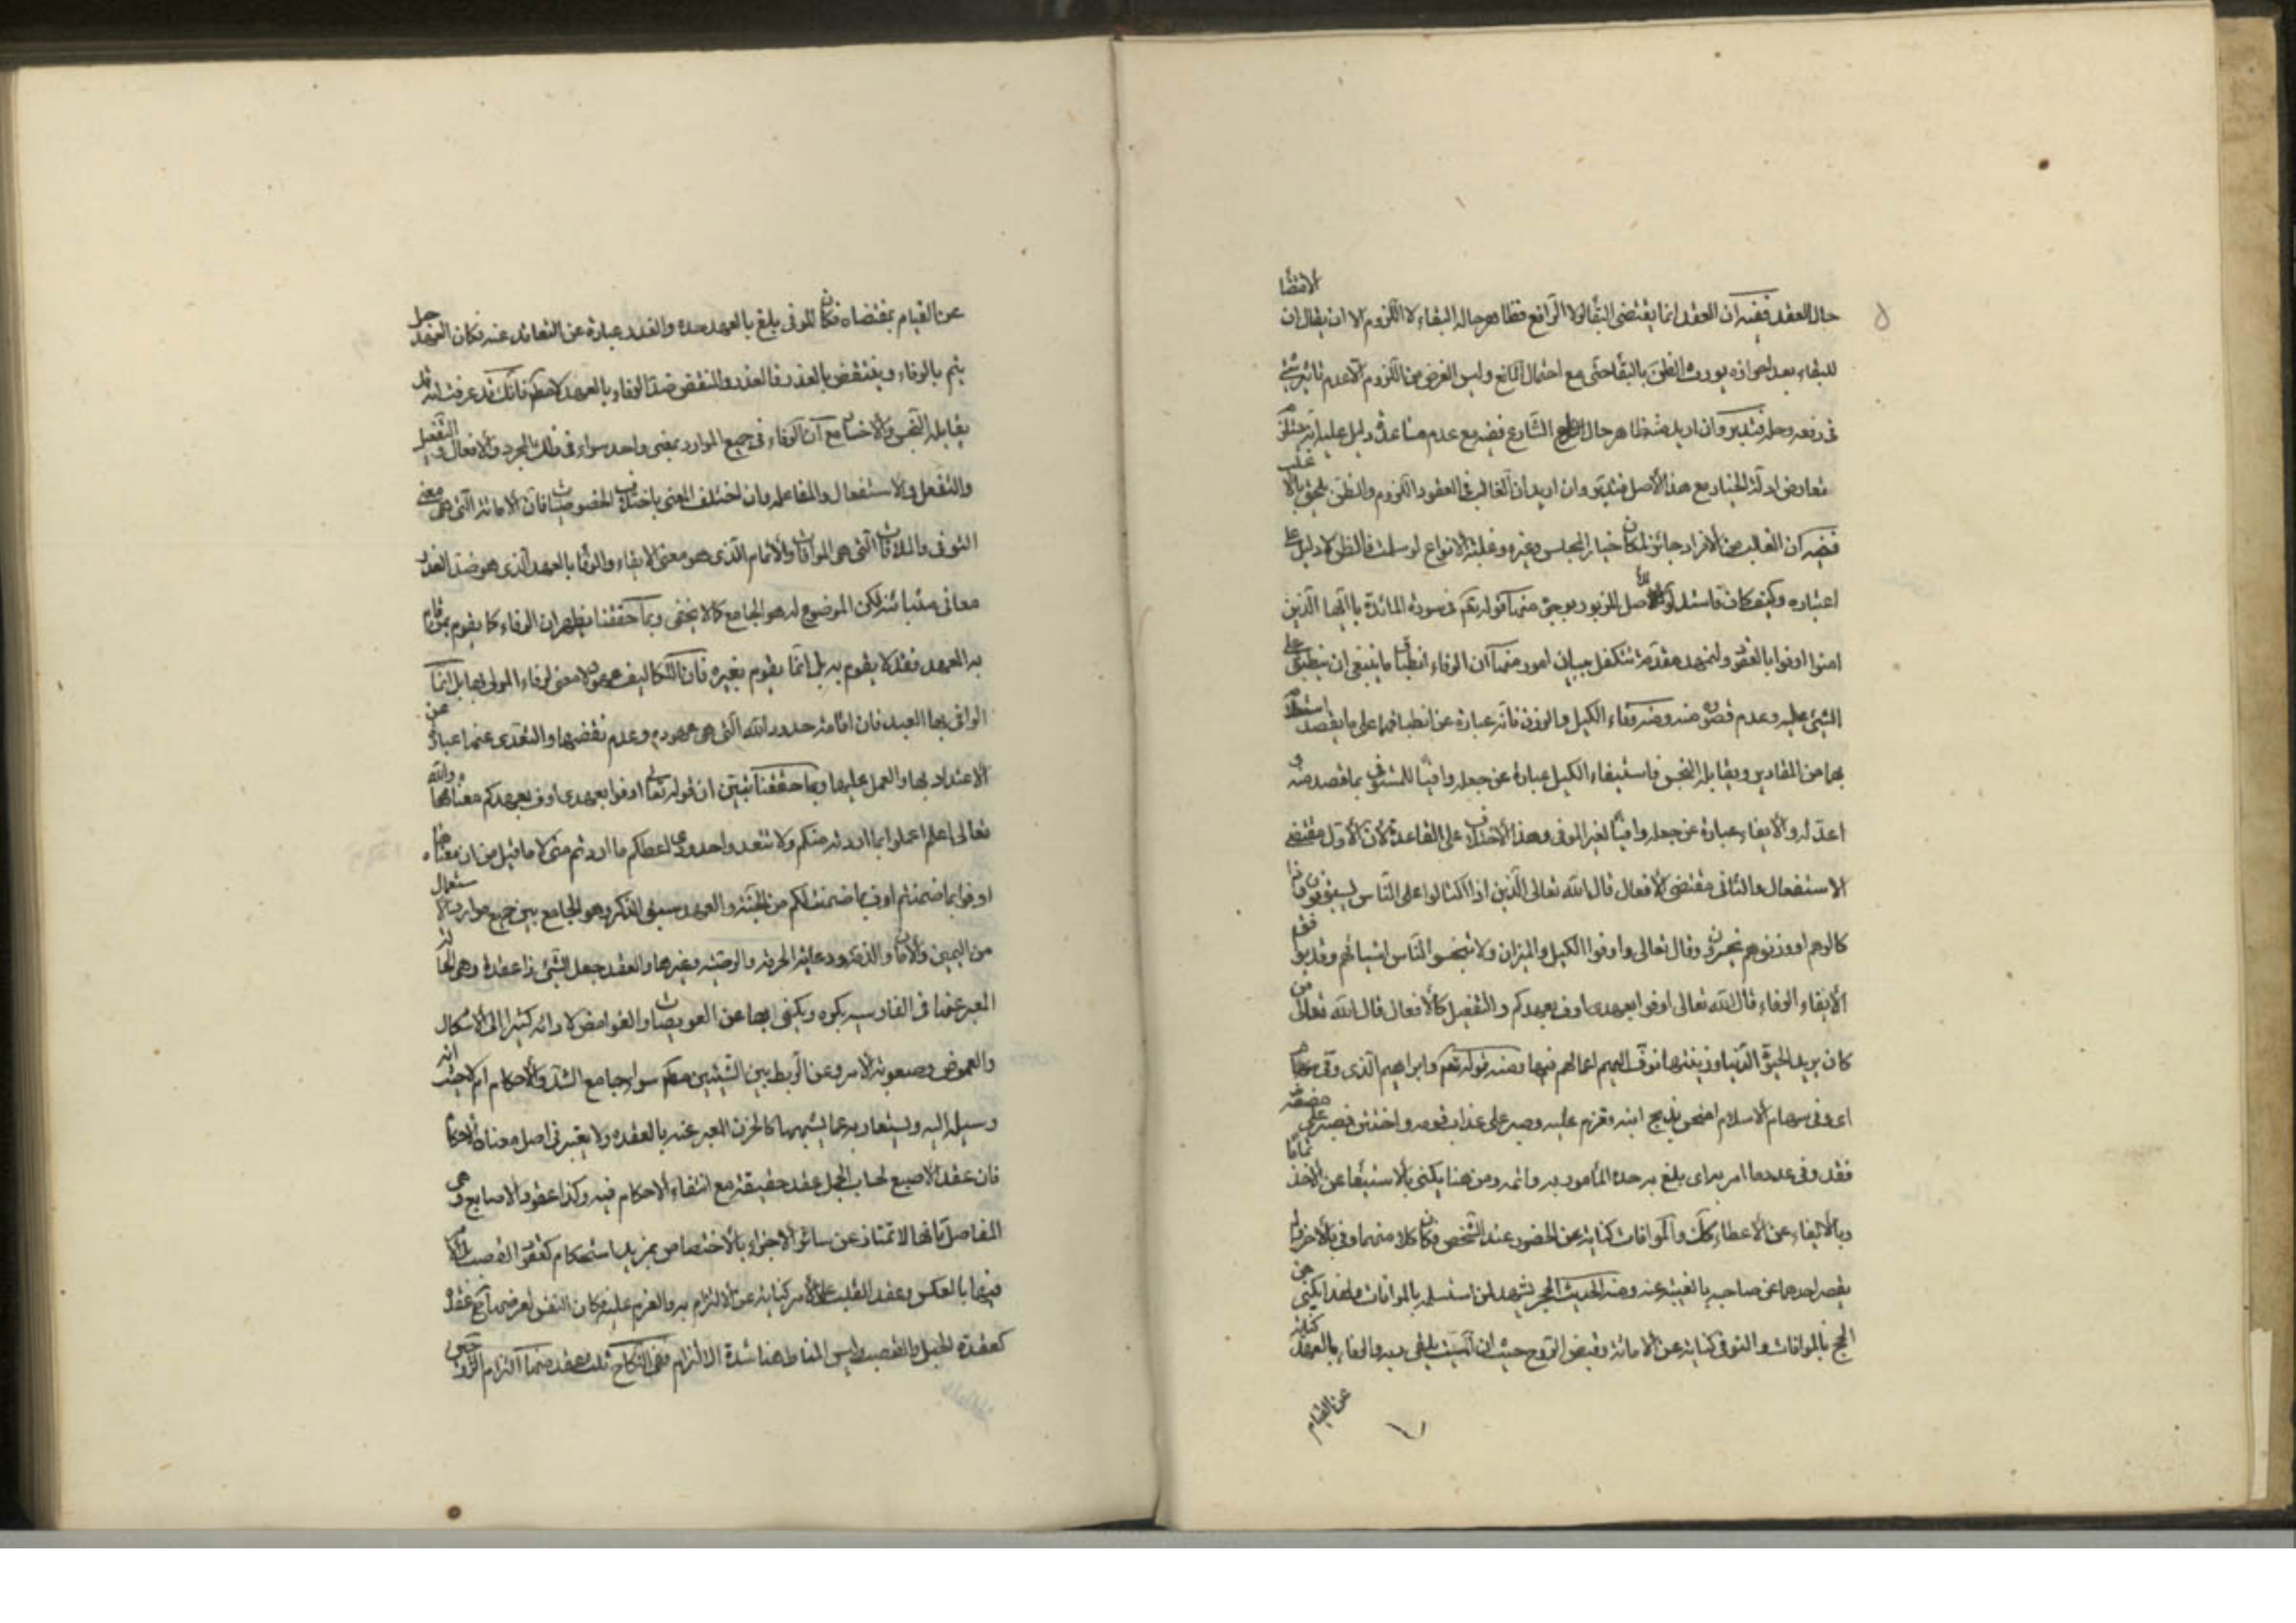 حال العقد ففيه ان العقد انما يقتضى البقاء لولا الرافع فظاهر حاله البقاء لا اللزوم الا ان يقال ان الاقتضا
للبقاء بعد احرازه يورث الظن بالبقاء حتى مع احتمال المانع وليس الغرض من اللزوم الا عدم تاثير شئ
فى رفعه وحله فتدبر وان اريد منه ظاهر حال الشارع ففيه مع عدم مساعدة دليل عليه انه
تعارض ادلة الخيار مع هذا الأصل فتدبر وان اريد ان الغالب فى العقود اللزوم والظن يلحق بالاغلب
ففيه ان الغالب من الافراد جائز لمكان خيار المجلس وغيره وغلبة الانواع لو سلمت فالظن لا دليل على
اعتباره وكيف كان فاستدلوا للاصل المزبور بوجوه منها قوله تعم فى سورة المائدة يا ايها الذين
امنوا اوفوا بالعقود ولنمهد مقدمة تتكفل ببيان امور منها ان الوفاء انطباق ما ينبغى ان ينطبق على
الشئ عليه وعدم قصوره منه ومنه وفاء الكيل والوزن فانه عبارة عن انطباقهما على ما يقصد
بهما من المقادير ويقابله البخس فاستيفاء الكيل عبارة عن جعله وافيا للمستوفى بما قصد منه و
اعد له والايفاء عبارة عن جعله وافيا لغير الموفى وهذا الاختلاف على القاعدة لان الأول مقتضى
الاستفعال والثانى مقتضى الأفعال قال الله تعالى الذين اذا اكتالوا على الناس يستوفون واذا
كالوهم او وزنوهم يخسرون وقال تعالى واوفوا الكيل والميزان ولا تبخسوا الناس اشياءهم وقد
الايفاء الوفاء قال الله تعالى اوفوا بعهدى اوف بعهدكم والتفعيل كالأفعال قال الله تعالى من
كان يريد الحيوة الدنيا وزينتها نوف اليهم اعمالهم فيها ومنه قوله تعم وابراهيم الذى وفى
اى وفى سهام الاسلام امتحن بذبح ابنه وعزم عليه وصبر على عذاب قومه واختتن فصبر على
فقد وفى عدد ما امر به اى بلغ به حده المأمور به واتمه ومن هنا يكنى بالاستيفاء عن الاخذ تماما
وبالايفاء عن الأعطاء كك والموافات كناية عن الحضور عند الشخص فكان كلا منهما وفى بالأخر ولم
يقصر احدهما عن صاحبه بالغيبة عنه ومنه الحديث الحجر يشهد لمن استسلمه بالموافات ولهذا يكنى عن
الحج بالموافات والتوفى كناية عن الاماتة وقبض الروح حيث ان الميت والوفاء بالعهد كناية
عن القيام
عن القيام بمقتضاه فكان الموفى بلغ بالعهد حده والغدر عبارة عن التقاعد عنه فكان العهد حبل
يتم بالوفاء وينتقض بالغدر فالغدر والنقض ضد الوفاء بالعهد لا مطلقا فانك قد عرفت انه قد
يقابله البخس والاخسار مع ان الوفاء فى جميع الموارد بمعنى واحد سواء فى ذلك المجرد والافعال والتفعيل
والتفعل والاستفعال والمفاعله وان اختلف المعنى باختلاف الخصوصيات فان الأماتة التى هى معنى
التوفى والملاقات التى هى الموافات والأتمام الذى هو معنى الايفاء والوفاء بالعهد الذى هو ضد الغدر
معانى متبائنة لكن الموضوع له هو الجامع كما لا يخفى وبما حققنا يظهر ان الوفاء كما يقوم بمن قام
به العهد فقد لا يقوم به بل انما يقوم بغيره فان التكاليف عهود لا معنى لوفاء المولى بها بل انما
الوافى بها العبد فان اقامة حدود الله التى هى عهوده وعدم نقضها والتعدى عنها عبارة عن
الاعتداد بها والعمل عليها وبما حققنا تبين ان قوله تعالى اوفوا بعهدى اوف بعهدكم معناهما والله
تعالى اعلم اعملوا بما اردته منكم ولا تتعدوا حدودى اعطكم ما اردتم منى لا ما قيل من ان معناه
اوفوا بما ضمنتم اوف بما ضمنت لكم من الجنة والعهد سيق الذكر وهو الجامع بين جميع موارد الاستعمال
من اليمين والأمان والذمة ورعاية الحرمة والوصية وغيرها والعقد جعل الشئ ذا عقدة وهى الحالة
المعبر عنها فى الفارسيه بكره ويكنى بها عن العويصات والغوامض لادائه كثيرا الى الأشكال
والغموض وصعوبة الأمر وعن الربط بين الشيئين سواء جامع الشد والأحكام ام لا حيث انه
وسيلة اليه ويستعار به عما يشبهها كالخرزة المعبر عنه بالعقده ولا يعتبر فى اصل معناه الأحكام
فان عقد الأصبع لحساب الجمل عقد حقيقة مع انتفاء الاحكام فيه وكذا عقود الاصابع وهى
المفاصل فانها لا تمتاز عن سائر الاجزاء بالأختصاص بمزيد استحكام كعقود القصب بل الأمر
فيها بالعكس وعقد القلب على الأمر كناية عن الالتزام به والعزم عليه فكان النفس لعرضها له عقدة
كعقدة الحبل والقصب وليس المناط هنا شدة الالتزام ففى النكاح ثلث عقد منها التزام الزوجين